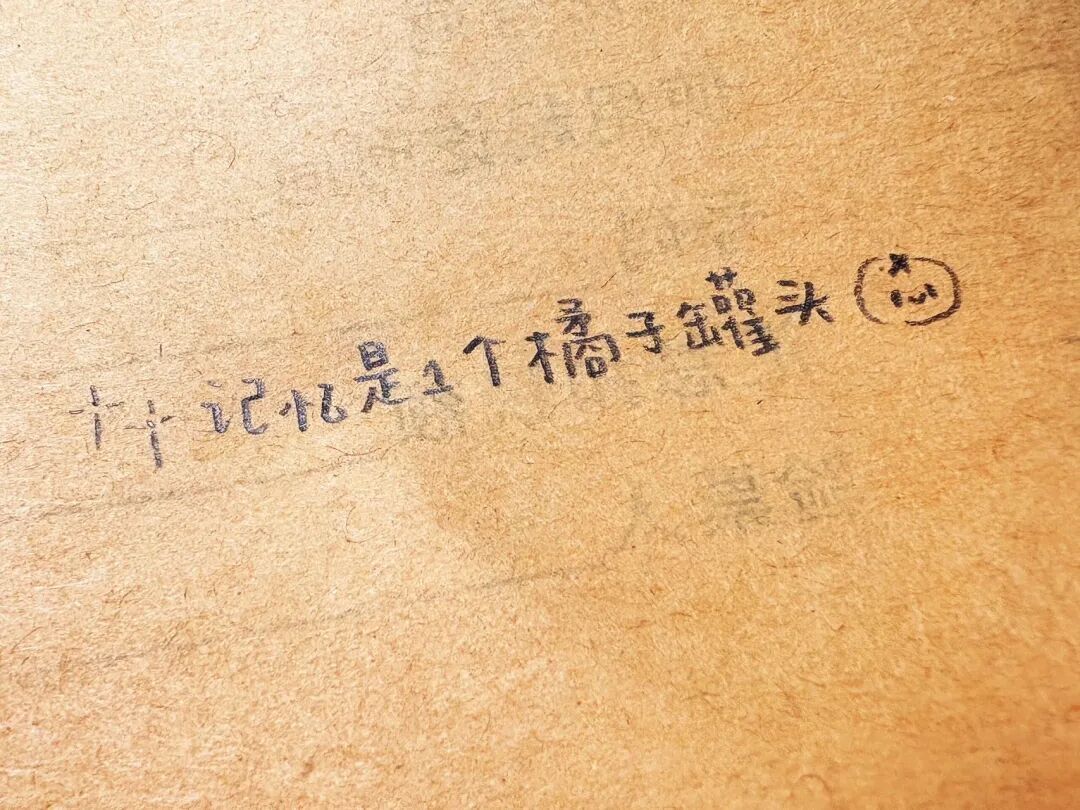 记忆是1个橘子罐头